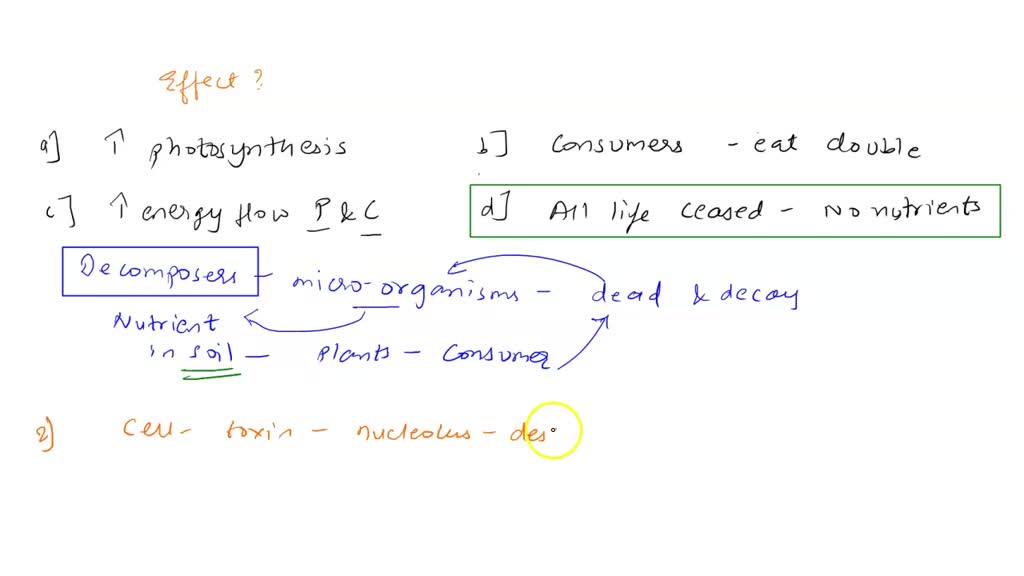 Effect ?
a] ↑ photosynthesis
b] Consumers - eat double
c] ↑ energy flow P & C
d] All life ceased - No nutrients
Decomposers - micro-organisms - dead & decay
Nutrient
in soil - Plants - Consumer
2) Cell - toxin - nucleolus - des